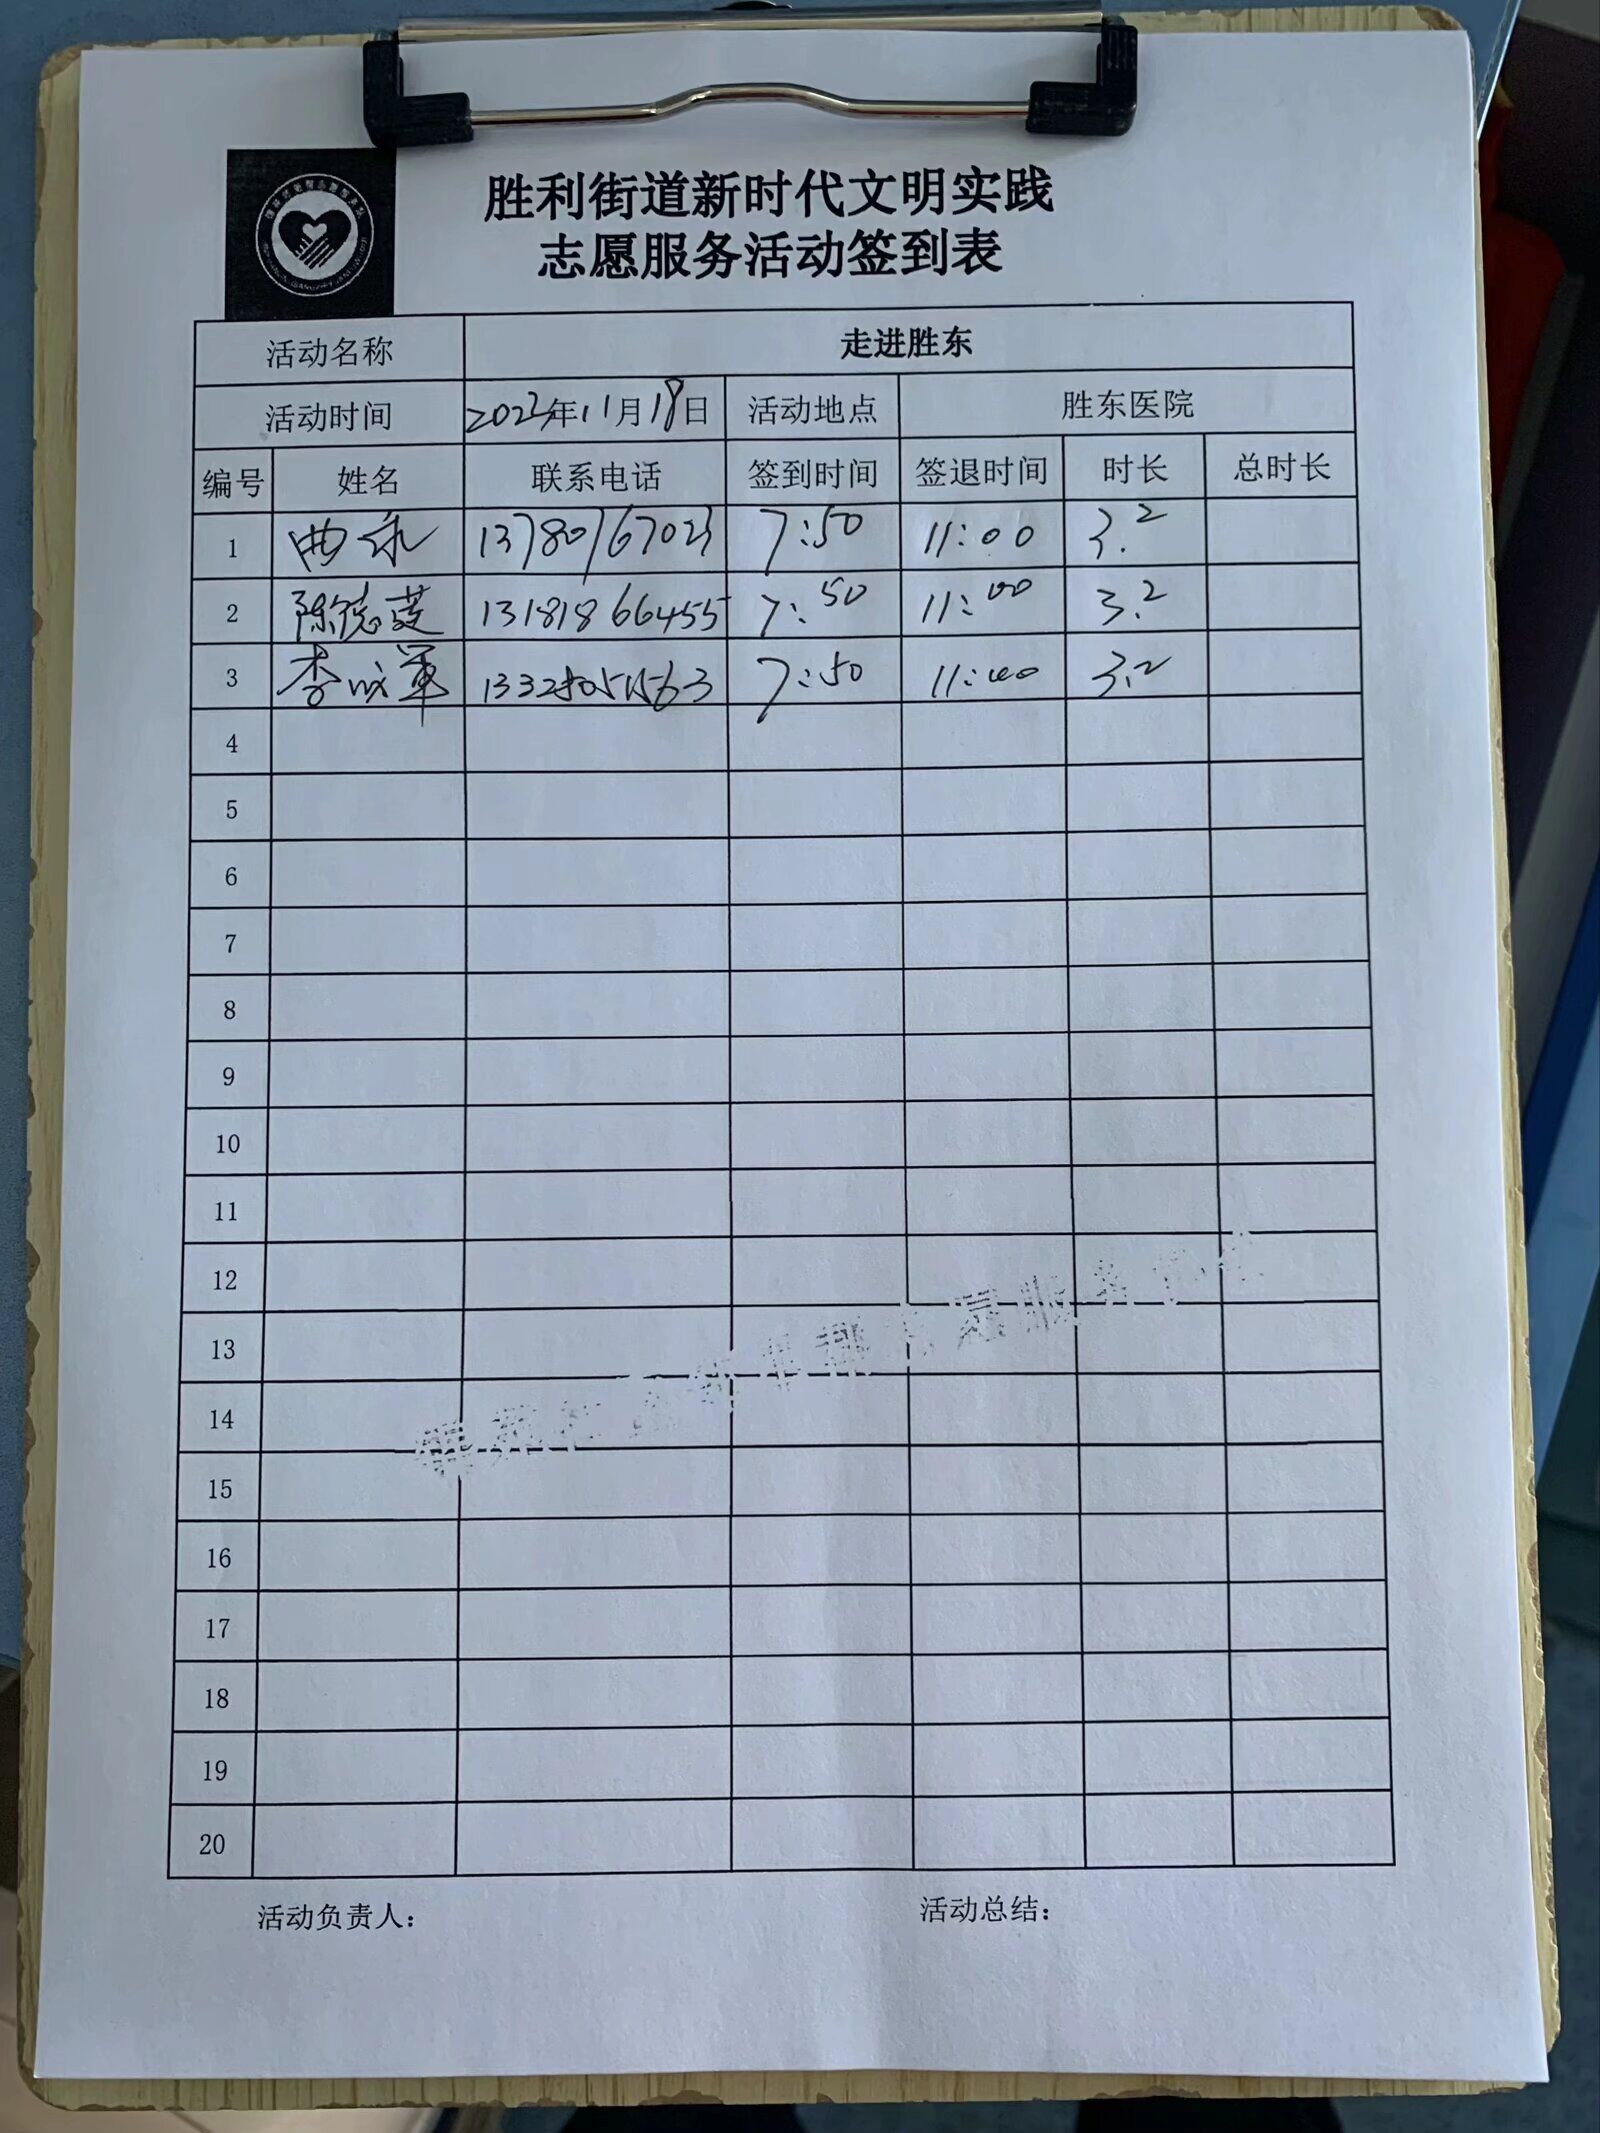 胜利街道新时代文明实践
志愿服务活动签到表
活动名称 走进胜东
活动时间 2023年11月18日 活动地点 胜东医院
编号 姓名 联系电话 签到时间 签退时间 时长 总时长
1 曲永 13780767023 7:50 11:00 3.2
2 陈德英 13181866455 7:50 11:00 3.2
3 李成军 7:50 11:00 3.2
4
5
6
7
8
9
10
11
12
13
14
15
16
17
18
19
20
活动负责人: 活动总结: